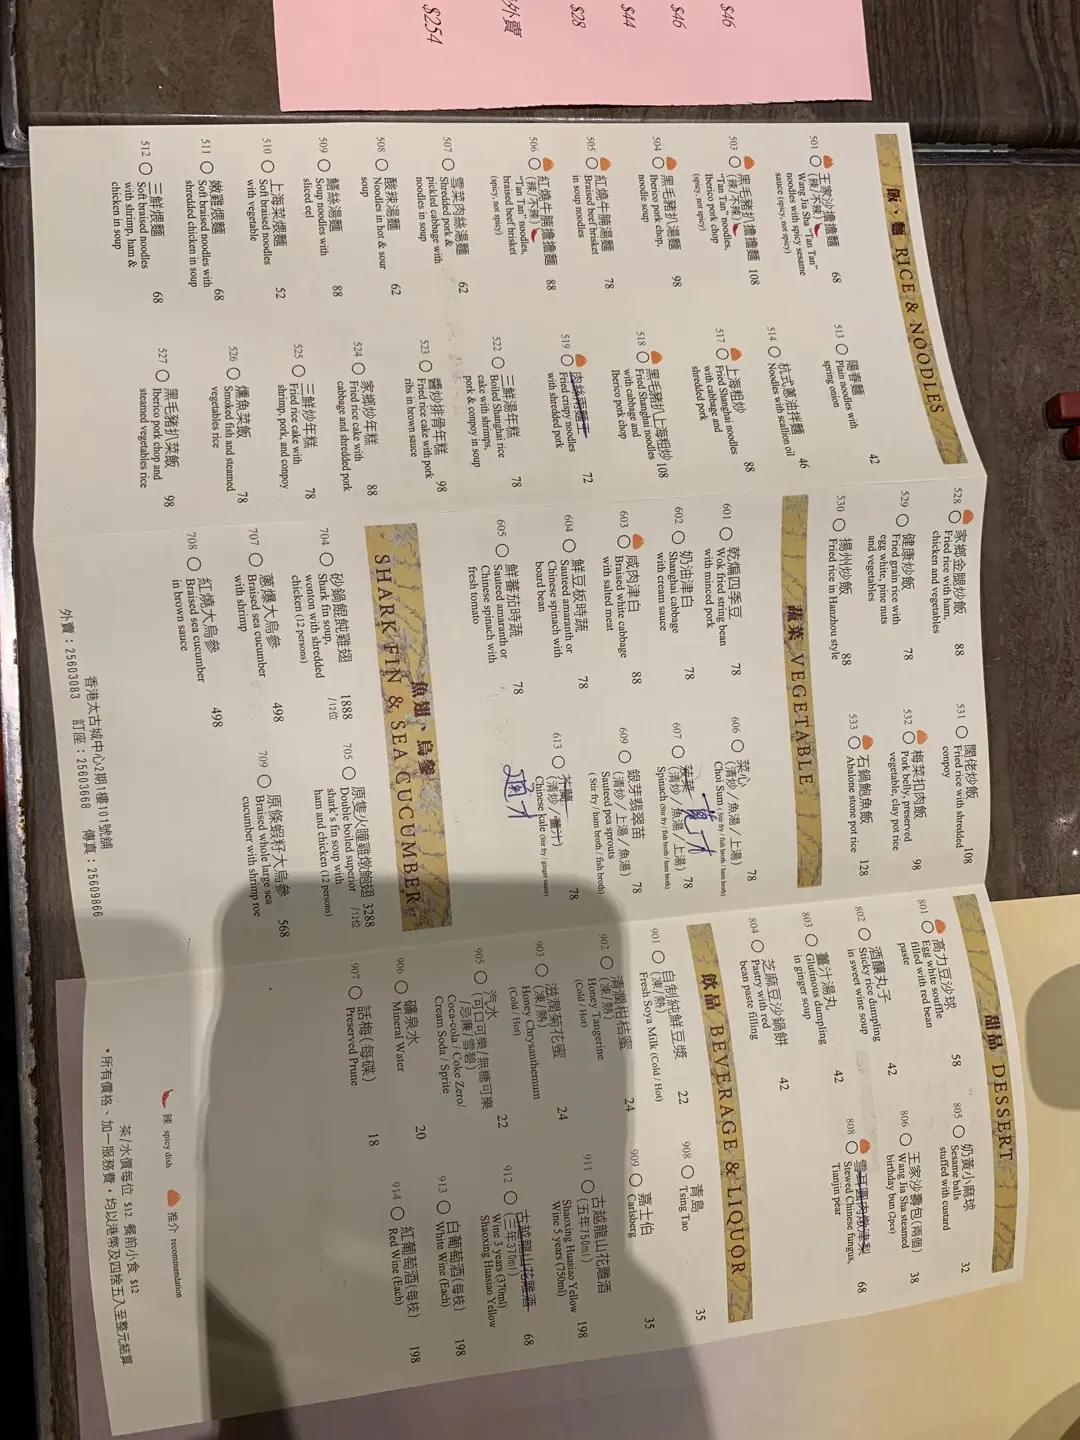 $46
$46
$44
$28
外賣
$254
飯，麵 RICE & NOODLES
501 王家沙擔擔麵
(辣/不辣)
Wang Jia Sha "Tan Tan"
noodles with spicy sesame
sauce (spicy, not spicy)
68
503 黑毛豬扒擔擔麵
(辣/不辣)
"Tan Tan" noodles,
Iberico pork chop
(spicy, not spicy)
108
504 黑毛豬扒湯麵
Iberico pork chop,
noodle soup
98
505 紅燒牛腩湯麵
Braised beef brisket
in soup noodles
78
506 紅燒牛腩擔擔麵
(辣/不辣)
"Tan Tan" noodles,
braised beef brisket
(spicy, not spicy)
88
507 雪菜肉絲湯麵
Shredded pork &
pickled cabbage with
noodles in soup
62
508 酸辣湯麵
Noodles in hot & sour
soup
62
509 鱔絲湯麵
Soup noodles with
sliced eel
88
510 上海菜煨麵
Soft braised noodles
with vegetable
52
511 嫩雞煨麵
Soft braised noodles with
shredded chicken in soup
68
512 三鮮煨麵
Soft braised noodles
with shrimp, ham &
chicken in soup
68
513 陽春麵
Plain noodles with
spring onion
42
514 杭式蔥油拌麵
Noodles with scallion oil
46
517 上海粗炒
Fried Shanghai noodles
with cabbage and
shredded pork
88
518 黑毛豬扒上海粗炒
Fried Shanghai noodles
with cabbage and
Iberico pork chop
108
519 肉絲兩面王
Fried crispy noodles
with shredded pork
72
522 三鮮湯年糕
Boiled Shanghai rice
cake with shrimps,
pork & conpoy in soup
78
523 醬炒排骨年糕
Fried rice cake with pork
ribs in brown sauce
98
524 家鄉炒年糕
Fried rice cake with
cabbage and shredded pork
88
525 三鮮炒年糕
Fried rice cake with
shrimp, pork, and conpoy
78
526 燻魚菜飯
Smoked fish and steamed
vegetables rice
78
527 黑毛豬扒菜飯
Iberico pork chop and
steamed vegetables rice
98
528 家鄉金腿炒飯
Fried rice with ham,
chicken and vegetables
88
529 健康炒飯
Fried grain rice with
egg white, pine nuts
and vegetables
78
530 揚州炒飯
Fried rice in Hanzhou style
88
531 闊佬炒飯
Fried rice with shredded
conpoy
108
532 梅菜扣肉飯
Pork belly, preserved
vegetable, clay pot rice
98
533 石鍋鮑魚飯
Abalone stone pot rice
128
蔬菜 VEGETABLE
601 乾煸四季豆
Wok fried string bean
with minced pork
78
602 奶油津白
Shanghai cabbage
with cream sauce
78
603 咸肉津白
Braised white cabbage
with salted meat
88
604 鮮豆板時蔬
Sauteed amaranth or
Chinese spinach with
board bean
78
605 鮮蕃茄時蔬
Sauteed amaranth or
Chinese spinach with
fresh tomato
78
606 菜心
(清炒/魚湯/上湯)
Choi Sum (Stir fry / fish broth / ham broth)
78
607 菠菜
(清炒/魚湯/上湯)
Spinach (Stir fry / fish broth / ham broth)
78
609 銀芽翡翠苗
(清炒/上湯/魚湯)
Sauteed pea sprouts
(Stir fry / ham broth / fish broth)
78
613 芥蘭
(清炒/薑汁)
Chinese kale (Stir fry / ginger sauce)
78
魚翅、烏參
SHARK FIN & SEA CUCUMBER
704 砂鍋餛飩雞翅
Shark fin soup,
wonton with shredded
chicken (12 persons)
1888
/12位
705 原隻火朣雞燉鮑翅
Double boiled superior
shark's fin soup with
ham and chicken (12 persons)
3288
/12位
707 蔥爆大烏參
Braised sea cucumber
with shrimp
498
708 紅燒大烏參
Braised sea cucumber
in brown sauce
498
709 原條蝦籽大烏參
Braised whole large sea
cucumber with shrimp roe
568
甜品 DESSERT
801 高力豆沙球
Egg white souffle
filled with red bean
paste
58
802 酒釀丸子
Sticky rice dumpling
in sweet wine soup
42
803 薑汁湯丸
Glutinous dumpling
in ginger soup
42
804 芝麻豆沙鍋餅
Pastry with red
bean paste filling
42
805 奶黃小麻球
Sesame balls
stuffed with custard
32
806 王家沙壽包(兩個)
Wang Jia Sha steamed
birthday bun (2pcs)
38
808 雪耳圓肉燉津梨
Stewed Chinese fungus,
Tianjin pear
68
飲品 BEVERAGE & LIQUOR
901 自制純鮮豆漿
(凍/熱)
Fresh Soya Milk (Cold / Hot)
22
902 清潤柑桔蜜
(凍/熱)
Honey Tangerine
(Cold / Hot)
24
903 滋潤菊花蜜
(凍/熱)
Honey Chrysanthemum
(Cold / Hot)
24
905 汽水
(可口可樂/無糖可樂
/忌廉/雪碧)
Coca-cola / Coke Zero/
Cream Soda / Sprite
22
906 礦泉水
Mineral Water
20
907 話梅(每碟)
Preserved Prune
18
908 青島
Tsing Tao
35
909 嘉士伯
Carlsberg
35
911 古越龍山花雕酒
(五年750ml)
Shaoxing Huasiao Yellow
Wine 5 years (750ml)
198
912 古越龍山花雕酒
(三年370ml)
Wine 3 years (370ml)
Shaoxing Huasiao Yellow
68
913 白葡萄酒(每枝)
White Wine (Each)
198
914 紅葡萄酒(每枝)
Red Wine (Each)
198
辣 spicy dish 推介 recommendation
茶/水價每位 $12 餐前小食 $12
*所有價格、加一服務費，均以港幣及四捨五入至整元結算
香港太古城中心2期1樓101號舖
外賣：25603083 訂座：25603668 傳真：25609866